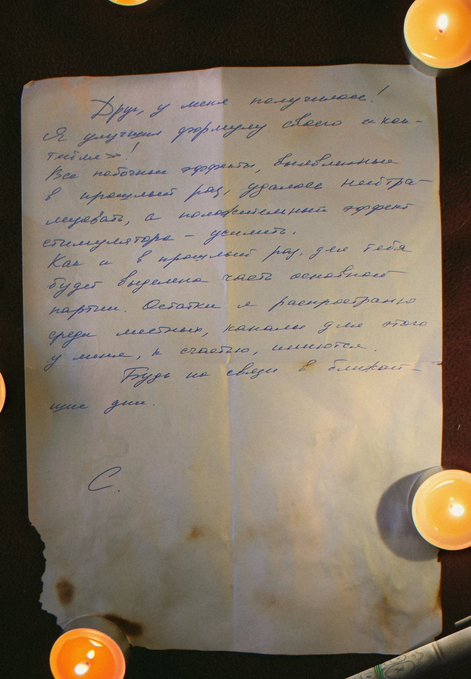 Друг, у меня получилось!
Я улучшил формулу своего
Все побочные эффекты, выявленные
в прошлый раз, удалось нейтра-
лизовать, а положительный эффект
стимулятора – усилить.
Как и в прошлый раз, для тебя
будет выделена часть основной
партии. Остатки я распространю
среди местных, каналы для этого
у меня, к счастью, имеются.
Будь на связи в ближай-
шие дни.
С.